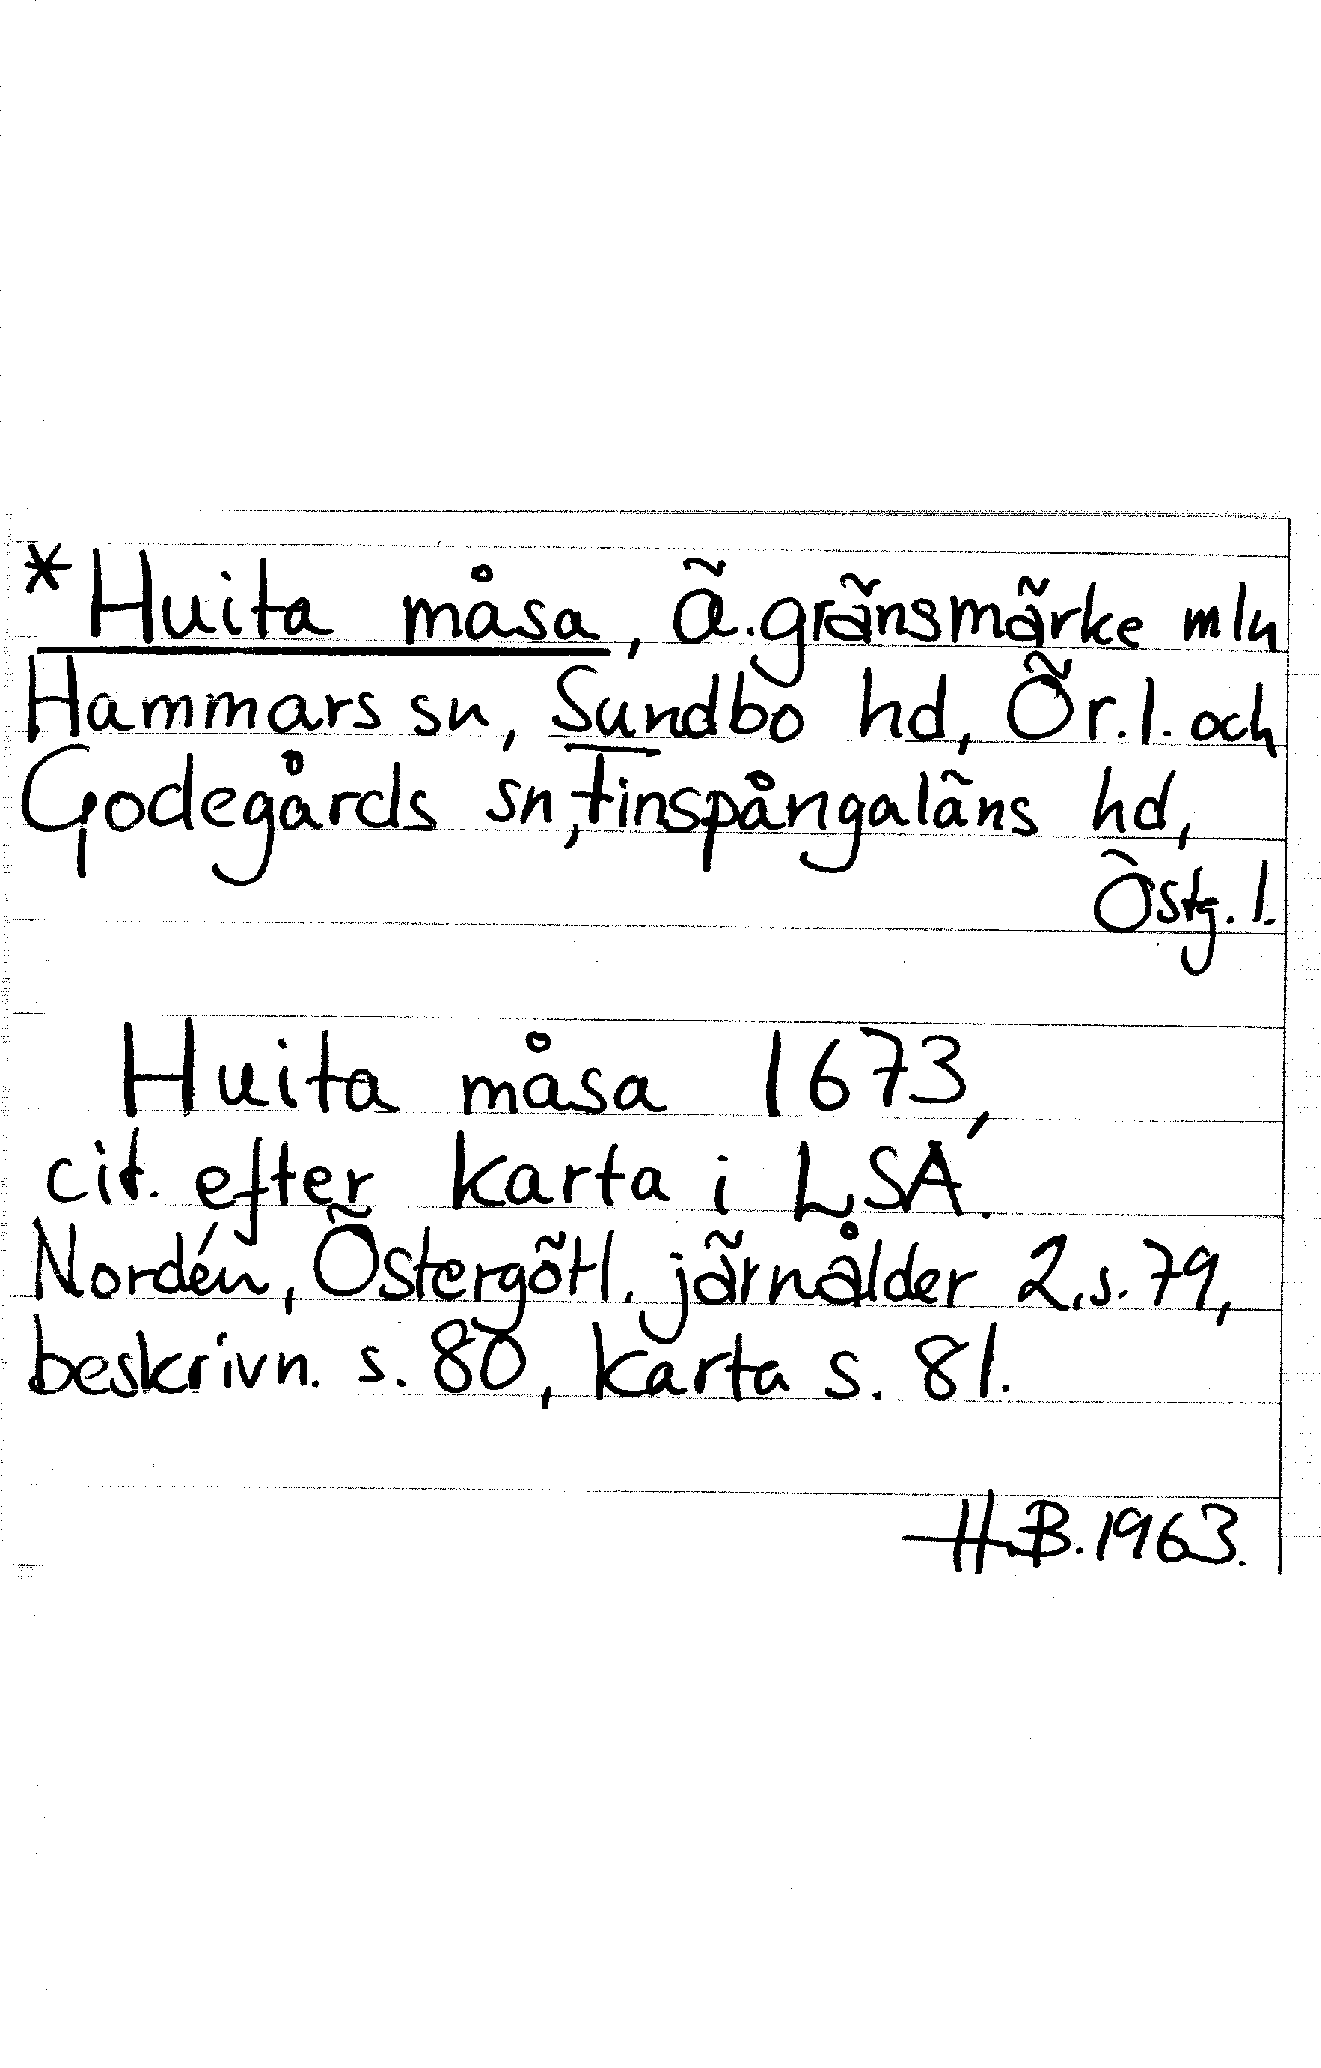 *Huita måsa, Ä.gränsmärke mln
Hammars sn, Sundbo hd, Ör.l. och
Godegårds sn, Finspångaläns hd,
Östg. l.
Huita måsa 1673,
cit. efter karta i LSA.
Nordén, Östergötl. järnålder 2, s. 79,
beskrivn. s. 80, karta s. 81.
H.B. 1963.